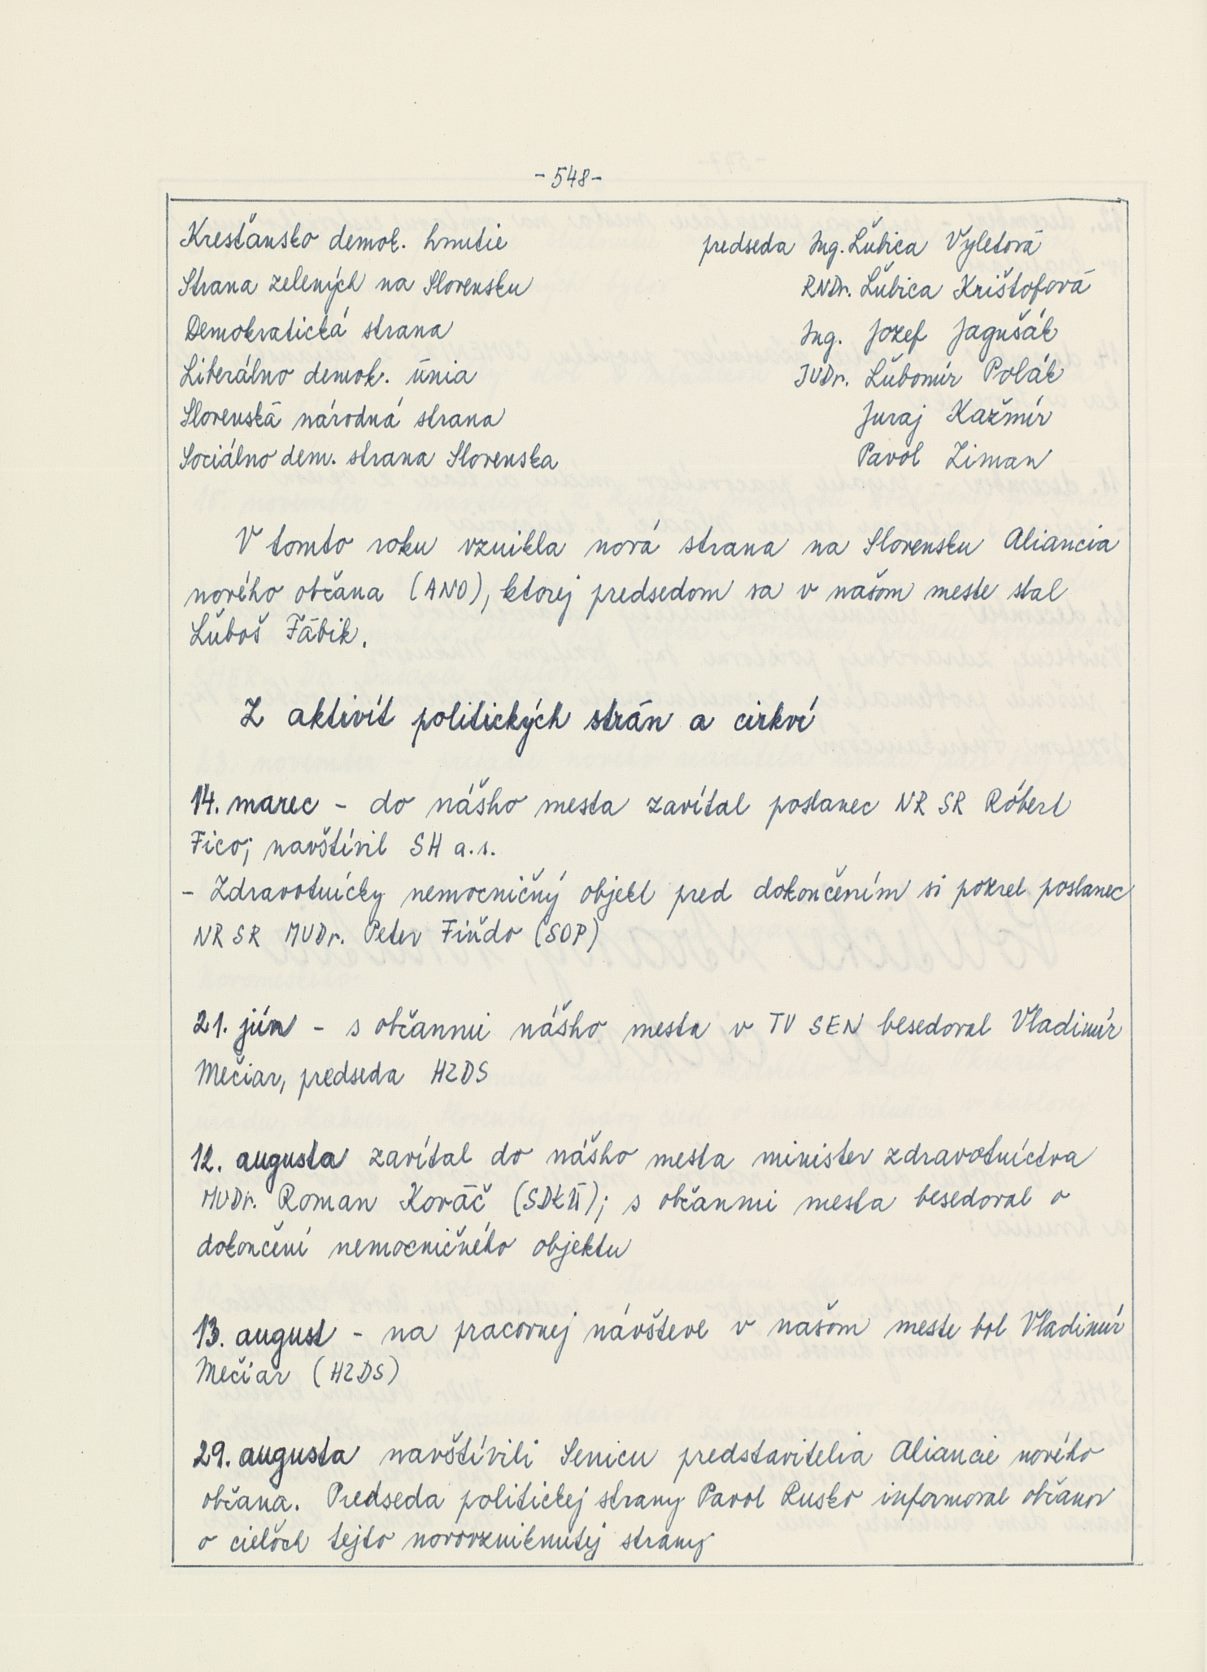 -548-
Kresťansko demok. hnutie predseda Ing. Ľubica Vyletová
Strana zelených na Slovensku RNDr. Ľubica Krištofová
Demokratická strana Ing. Jozef Jagušák
Liberálno demok. únia JUDr. Ľubomír Polák
Slovenská národná strana Juraj Kažmír
Sociálno dem. strana Slovenska Pavol Ziman
V tomto roku vznikla nová strana na Slovensku Aliancia
nového občana (ANO), ktorej predsedom sa v našom meste stal
Ľuboš Fábik.
Z aktivít politických strán a cirkví
14. marec - do nášho mesta zavítal poslanec NR SR Róbert
Fico; navštívil SH a.s.
- Zdravotnícky nemocničný objekt pred dokončením si pozrel poslanec
NR SR MUDr. Peter Finďo (SOP)
21. jún - s občanmi nášho mesta v TV SEN besedoval Vladimír
Mečiar, predseda HZDS
12. augusta zavítal do nášho mesta minister zdravotníctva
MUDr. Roman Kováč (SDKÚ); s občanmi mesta besedoval o
dokončení nemocničného objektu
13. august - na pracovnej návšteve v našom meste bol Vladimír
Mečiar (HZDS)
29. augusta navštívili Senicu predstavitelia Aliancie nového
občana. Predseda politickej strany Pavol Rusko informoval občanov
o cieľoch tejto novovzniknutej strany